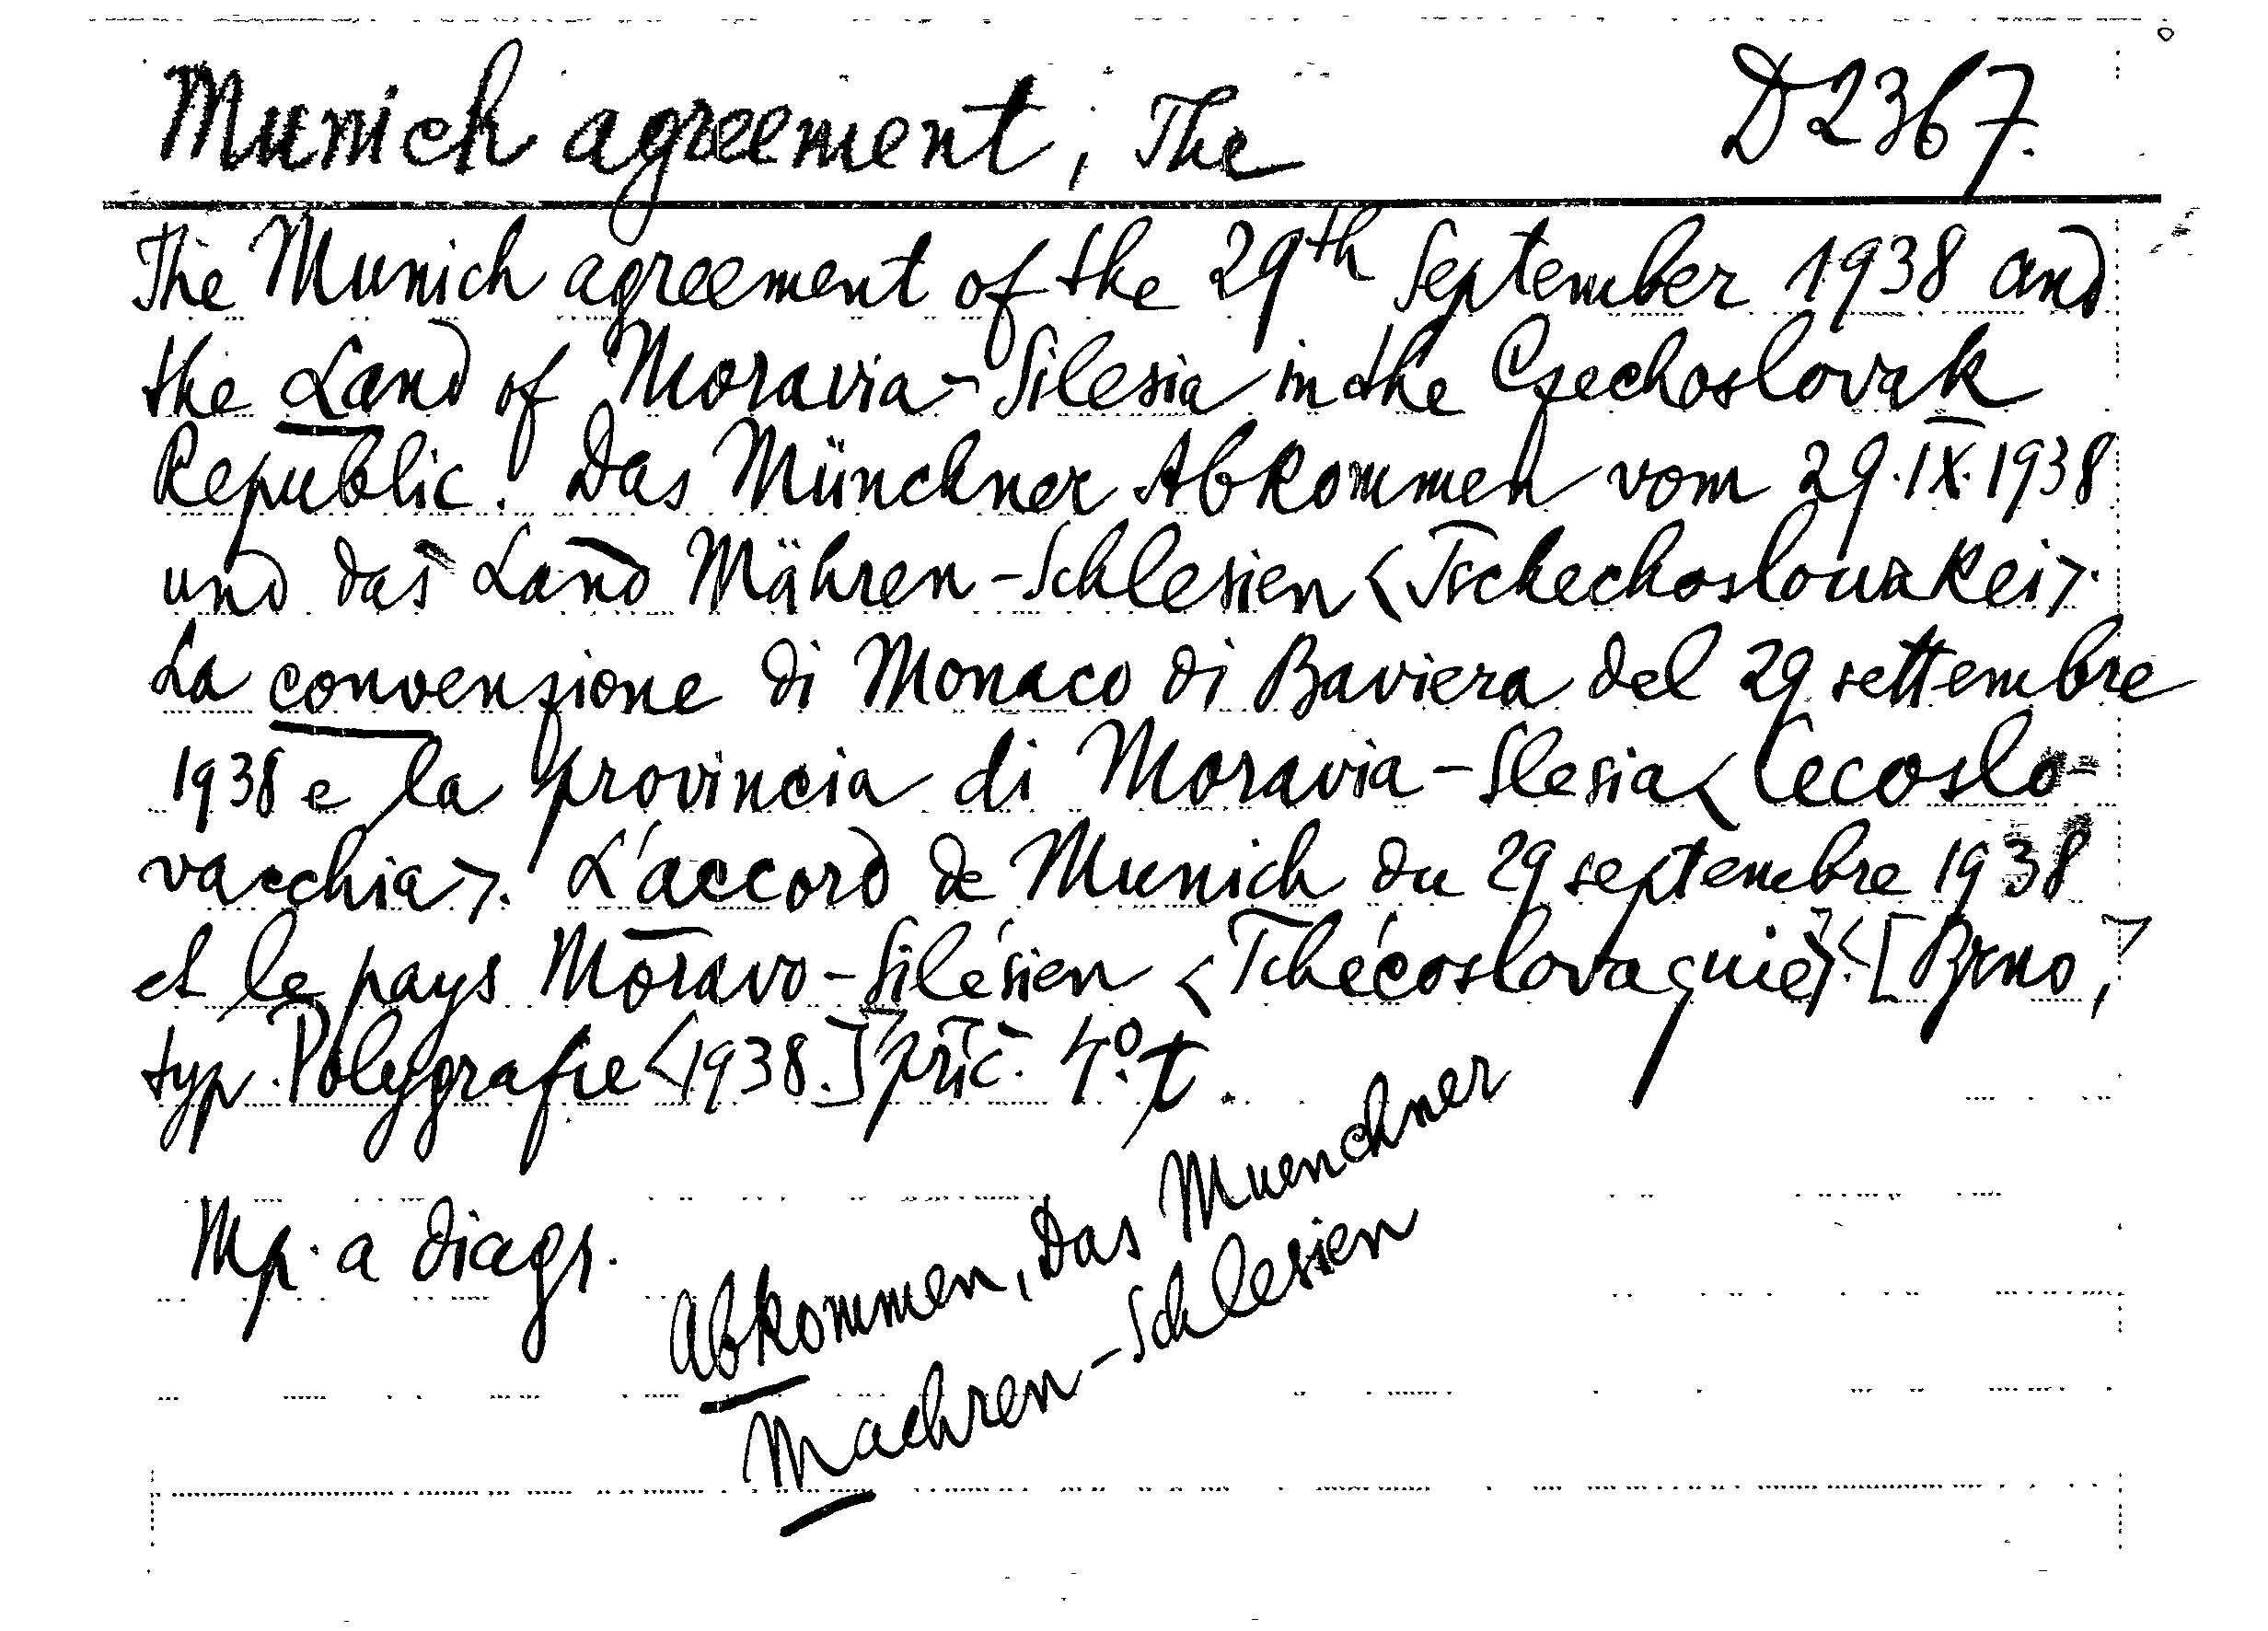 Munich agreement, The D 2367.
The Munich agreement of the 29th September 1938 and
the Land of Moravia-Silesia in the Czechoslovak
Republic. Das Münchner Abkommen vom 29.IX.1938
und das Land Mähren-Schlesien <Tschechoslowakei>.
La convenzione di Monaco di Baviera del 29 settembre
1938 e la provincia di Moravia-Slesia <Cecoslo-
vacchia>. L'accord de Munich du 29 septembre 1938
et le pays Moravo-Silésien <Tchécoslovaquie>. [Brno,
typ. Polygrafie <1938.] příč. 4° t.
Mp. a diagr.
Abkommen, Das Muenchner
Maehren-Schlesien